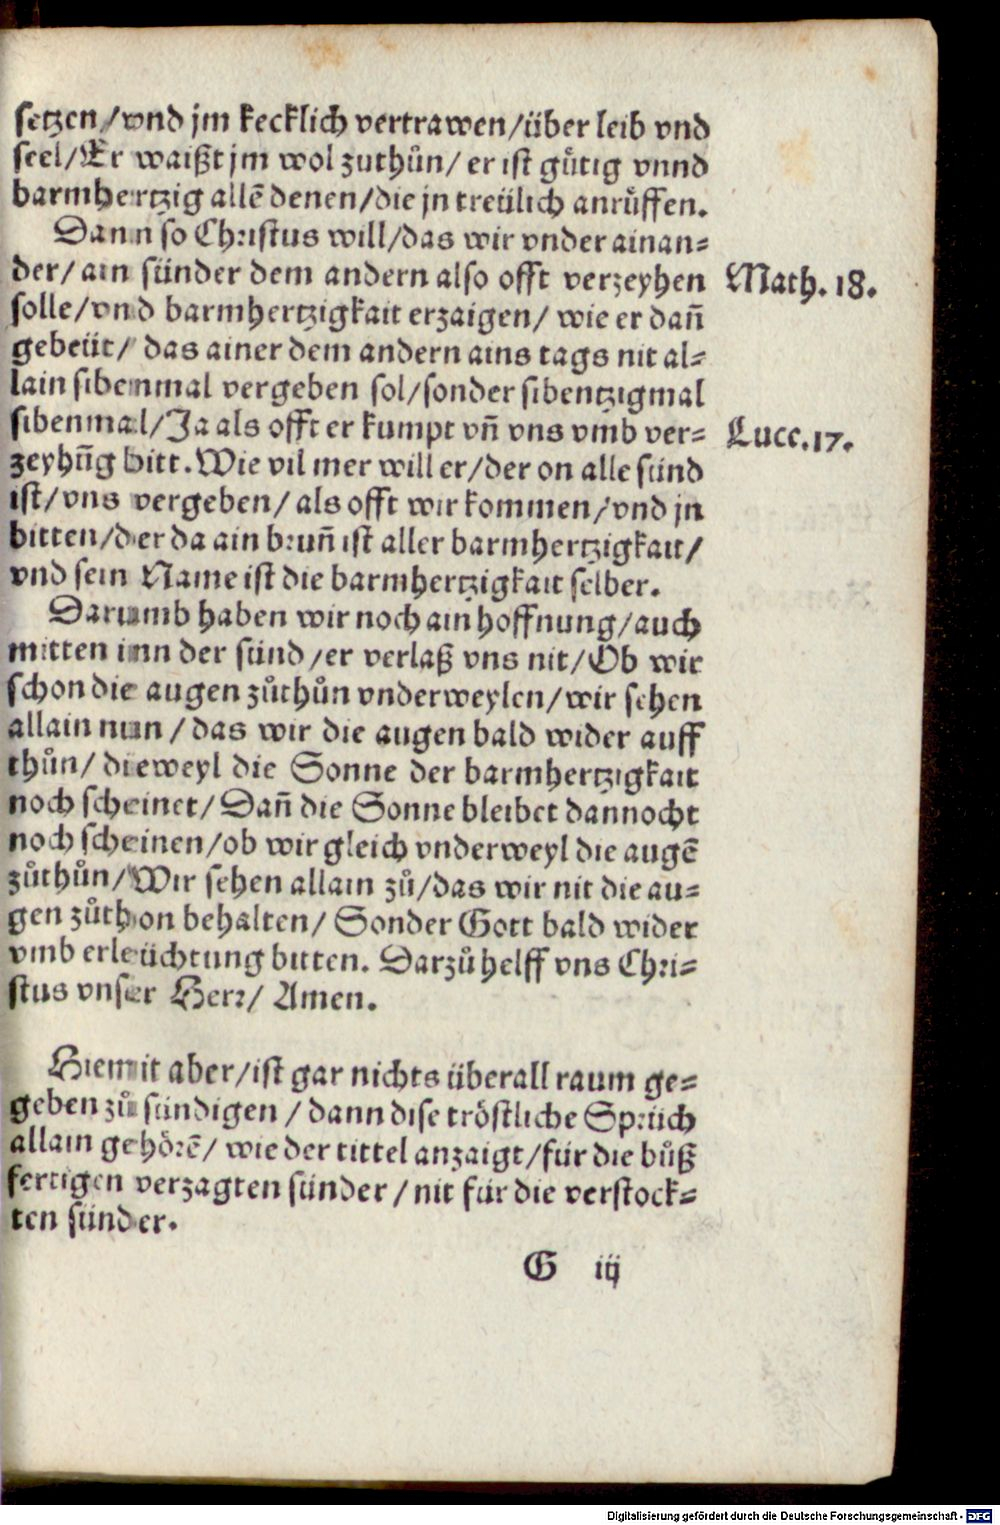 setzen/vnd jm kecklich vertrawen/über leib vnd
seel/Er waißt jm wol zuthůn/ er ist gůtig vnnd
barmhertzig allē denen/die jn treülich anrůffen.
Dann so Christus will/das wir vnder ainan⸗
der/ ain sünder dem andern also offt verzeyhen
Math. 18.
solle/vnd barmhertzigkait erzaigen/ wie er dañ
gebeüt/ das ainer dem andern ains tags nit al⸗
lain sibenmal vergeben sol/sonder sibentzigmal
sibenmal/Ja als offt er kumpt vñ vns vmb ver⸗
Luce. 17.
zeyhũg bitt. Wie vil mer will er/der on alle sünd
ist/vns vergeben/ als offt wir kommen/vnd jn
bitten/der da ain brunñ ist aller barmhertzigkait/
vnd sein Name ist die barmhertzigkait selber.
Darumb haben wir noch ain hoffnung/auch
mitten inn der sünd/er verlaß vns nit/Ob wir
schon die augen zůthůn vnderweylen/wir sehen
allain nun/ das wir die augen bald wider auff
thůn/ dieweyl die Sonne der barmhertzigkait
noch scheinet/ Dañ die Sonne bleibet dannocht
noch scheinen/ob wir gleich vnderweyl die augē
zůthůn/Wir sehen allain zů/das wir nit die au⸗
gen zůthon behalten/ Sonder Gott bald wider
vmb erleüchtung bitten. Darzů helff vns Chri⸗
stus vnser Herr/ Amen.
Hiemit aber/ist gar nichts überall raum ge⸗
geben zů sündigen/ dann dise tröstliche Sprüch
allain gehörē/ wie der tittel anzaigt/für die bůß
fertigen verzagten sünder/ nit für die verstock⸗
ten sünder.
G iij
Digitalisierung gefördert durch die Deutsche Forschungsgemeinschaft - DFG